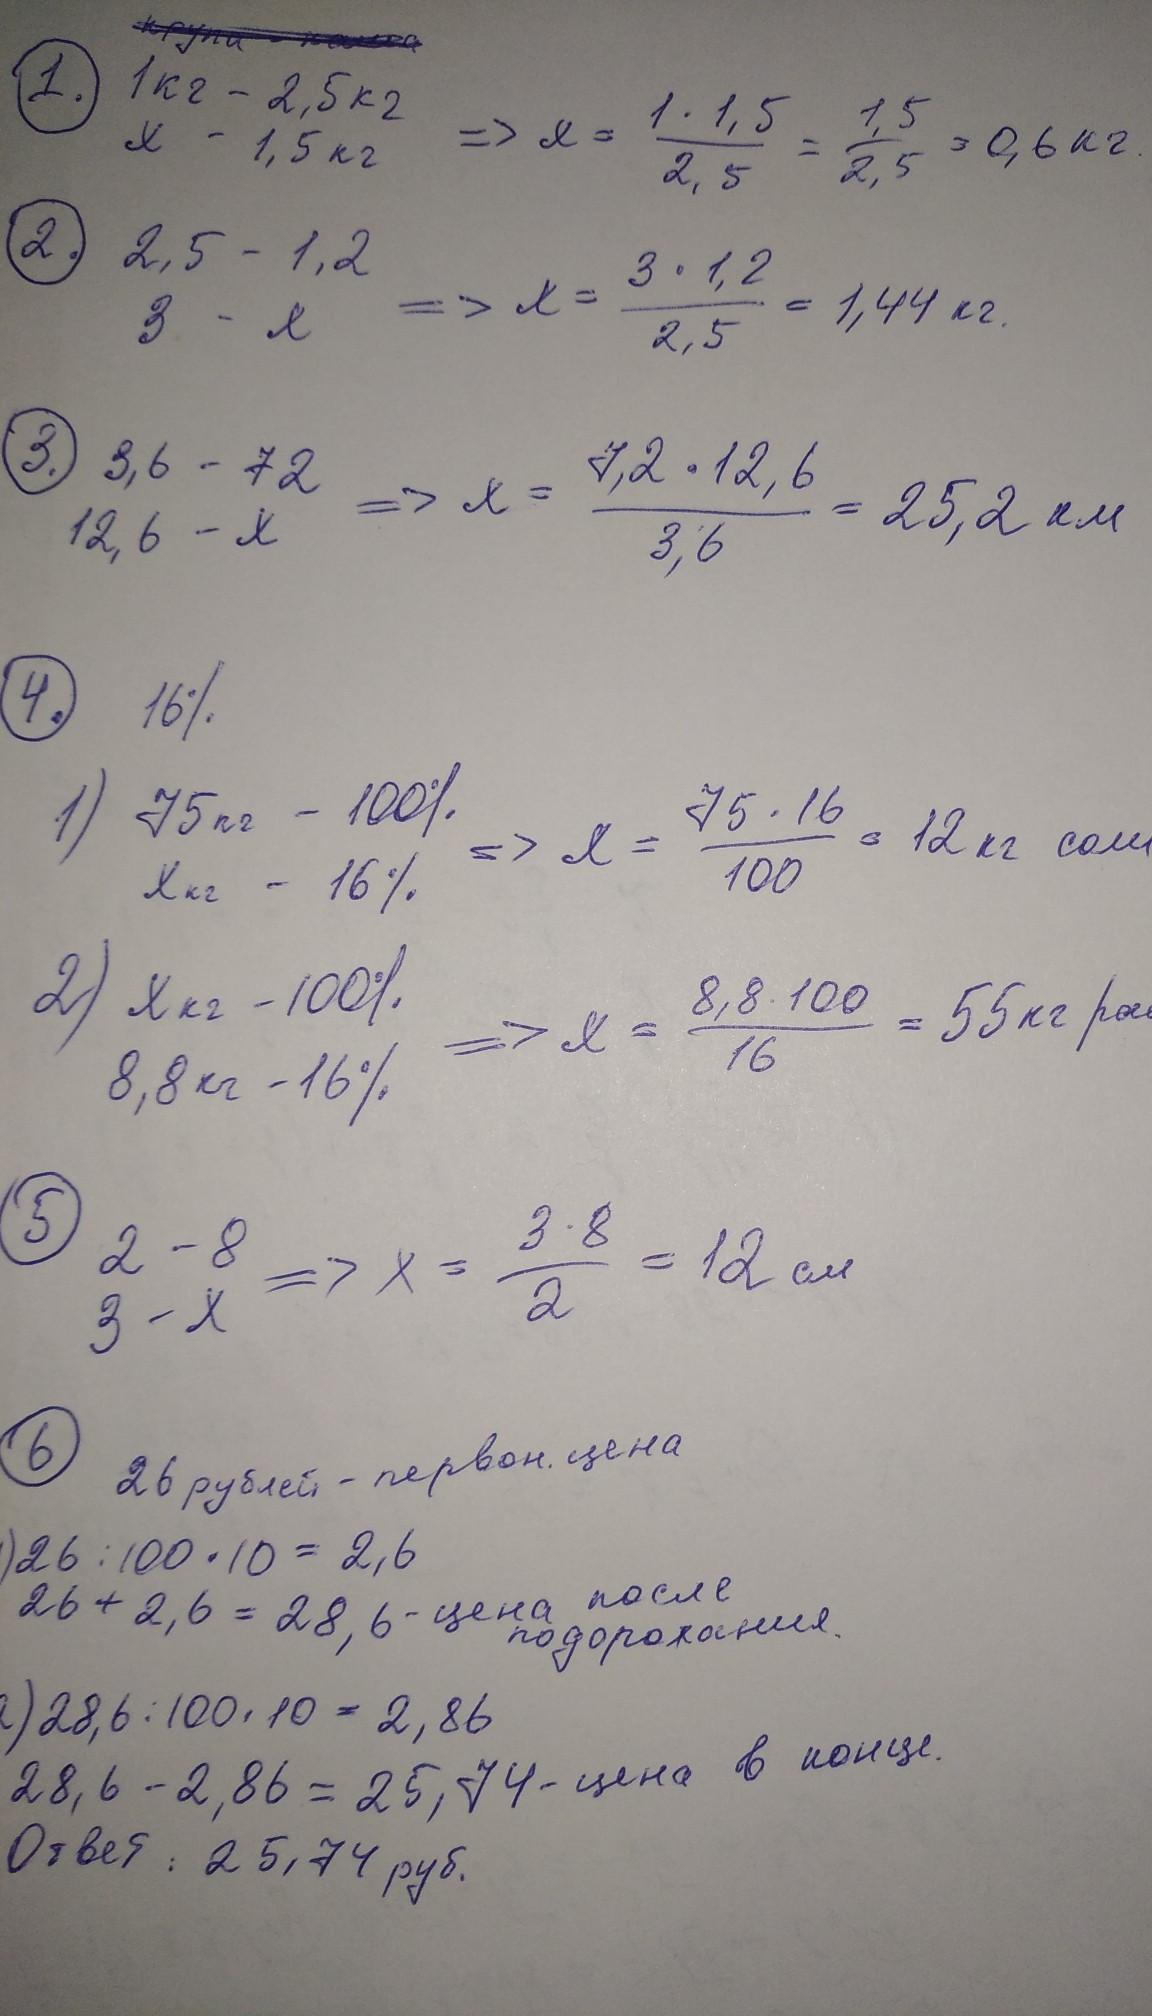 1. 1кг - 2,5кг
х - 1,5кг => х = 1 · 1,5 / 2,5 = 1,5 / 2,5 = 0,6 кг.
2. 2,5 - 1,2
3 - х => х = 3 · 1,2 / 2,5 = 1,44 кг.
3. 3,6 - 72
12,6 - х => х = 7,2 · 12,6 / 3,6 = 25,2 км
4. 16%
1) 75кг - 100%
хкг - 16% => х = 75 · 16 / 100 = 12кг соли
2) хкг - 100%
8,8кг - 16% => х = 8,8 · 100 / 16 = 55кг рас
5 2 - 8
3 - х => х = 3 · 8 / 2 = 12 см
6
26 рублей - первон. цена
)26 : 100 · 10 = 2,6
26 + 2,6 = 28,6 - цена после
подорожания.
2)28,6 : 100 · 10 = 2,86
28,6 - 2,86 = 25,74 - цена в конце.
Ответ: 25,74 руб.